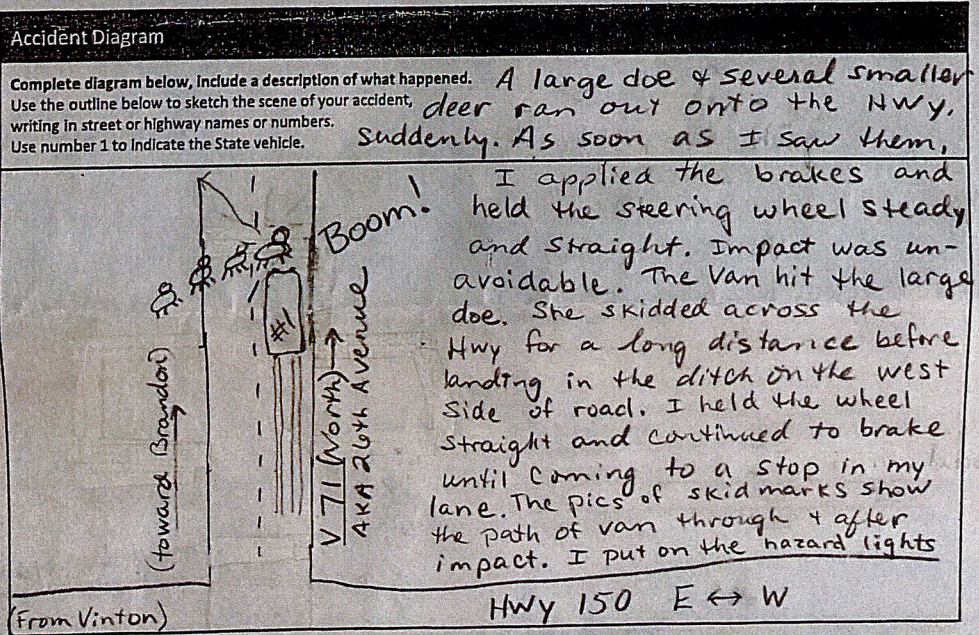 Accident Diagram
Complete diagram below, include a description of what happened.
Use the outline below to sketch the scene of your accident,
writing in street or highway names or numbers.
Use number 1 to indicate the State vehicle.
A large doe & several smaller
deer ran out onto the Hwy.
suddenly. As soon as I saw them,
I applied the brakes and
held the steering wheel steady
and straight. Impact was un-
avoidable. The Van hit the large
doe. She skidded across the
Hwy for a long distance before
landing in the ditch on the west
side of road. I held the wheel
straight and continued to brake
until coming to a stop in my
lane. The pics of skid marks show
the path of van through & after
impact. I put on the hazard lights
Boom!
#1
(toward Brandon)
V 71 (North) →
AKA 26th Avenue
(From Vinton)
Hwy 150 E ↔ W